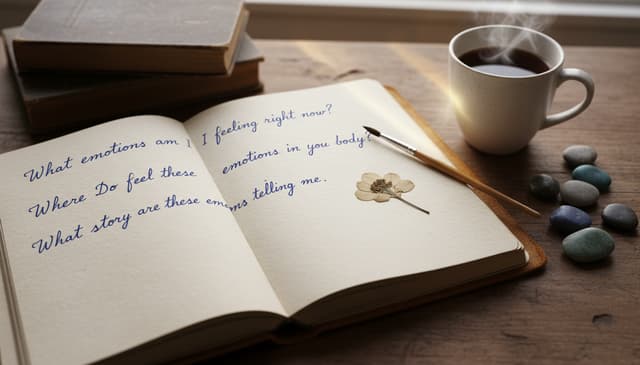 What emotions am I I feeling right now?
Where Do feel these emotions in you body?
What story are these telling me.